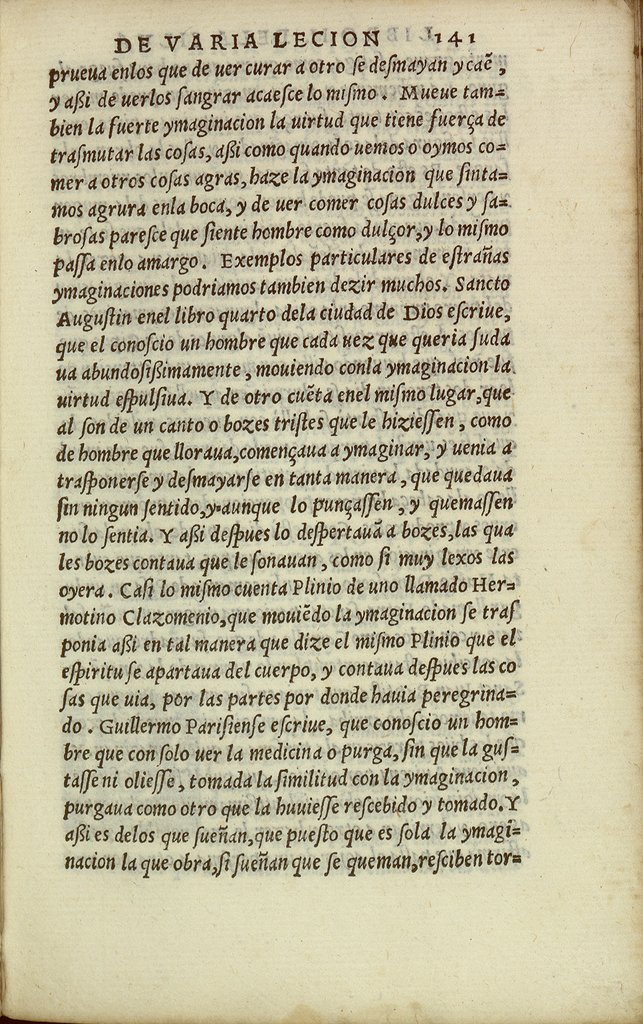 DE VARIA LECION 141
prueua enlos que de uer curar a otro se desmayan y caẽ,
y aßi de uerlos ſangrar acaeſce lo miſmo. Mueue tam=
bien la fuerte ymaginacion la uirtud que tiene fuerça de
traſmutar las coſas, aßi como quando uemos o oymos co=
mer a otros coſas agras, haze la ymaginacion que ſinta=
mos agrura enla boca, y de uer comer coſas dulces y ſa=
broſas pareſce que ſiente hombre como dulçor, y lo miſmo
paſſa enlo amargo. Exemplos particulares de eſtrañas
ymaginaciones podriamos tambien dezir muchos. Sancto
Auguſtin enel libro quarto dela ciudad de Dios eſcriue,
que el conoſcio un hombre que cada uez que queria ſuda
ua abundoſißimamente, mouiendo conla ymaginacion la
uirtud eſpulſiua. Y de otro cuẽta enel miſmo lugar, que
al ſon de un canto o bozes triſtes que le hizieſſen, como
de hombre que lloraua, començaua a ymaginar, y uenia a
traſponerſe y deſmayarſe en tanta manera, que quedaua
ſin ningun ſentido, y aunque lo punçaſſen, y quemaſſen
no lo ſentia. Y aßi deſpues lo deſpertauã a bozes, las qua
les bozes contaua que le ſonauan, como ſi muy lexos las
oyera. Caſi lo miſmo cuenta Plinio de uno llamado Her=
motino Clazomenio, que mouiẽdo la ymaginacion ſe traſ
ponia aßi en tal manera que dize el miſmo Plinio que el
eſpiritu ſe apartaua del cuerpo, y contaua deſpues las co
ſas que uia, por las partes por donde hauia peregrina=
do. Guillermo Pariſienſe eſcriue, que conoſcio un hom=
bre que con ſolo uer la medicina o purga, ſin que la guſ=
taſſe ni olieſſe, tomada la ſimilitud con la ymaginacion,
purgaua como otro que la huuieſſe reſcebido y tomado. Y
aßi es delos que ſueñan, que pueſto que es ſola la ymagi=
nacion la que obra, ſi ſueñan que ſe queman, reſciben tor=